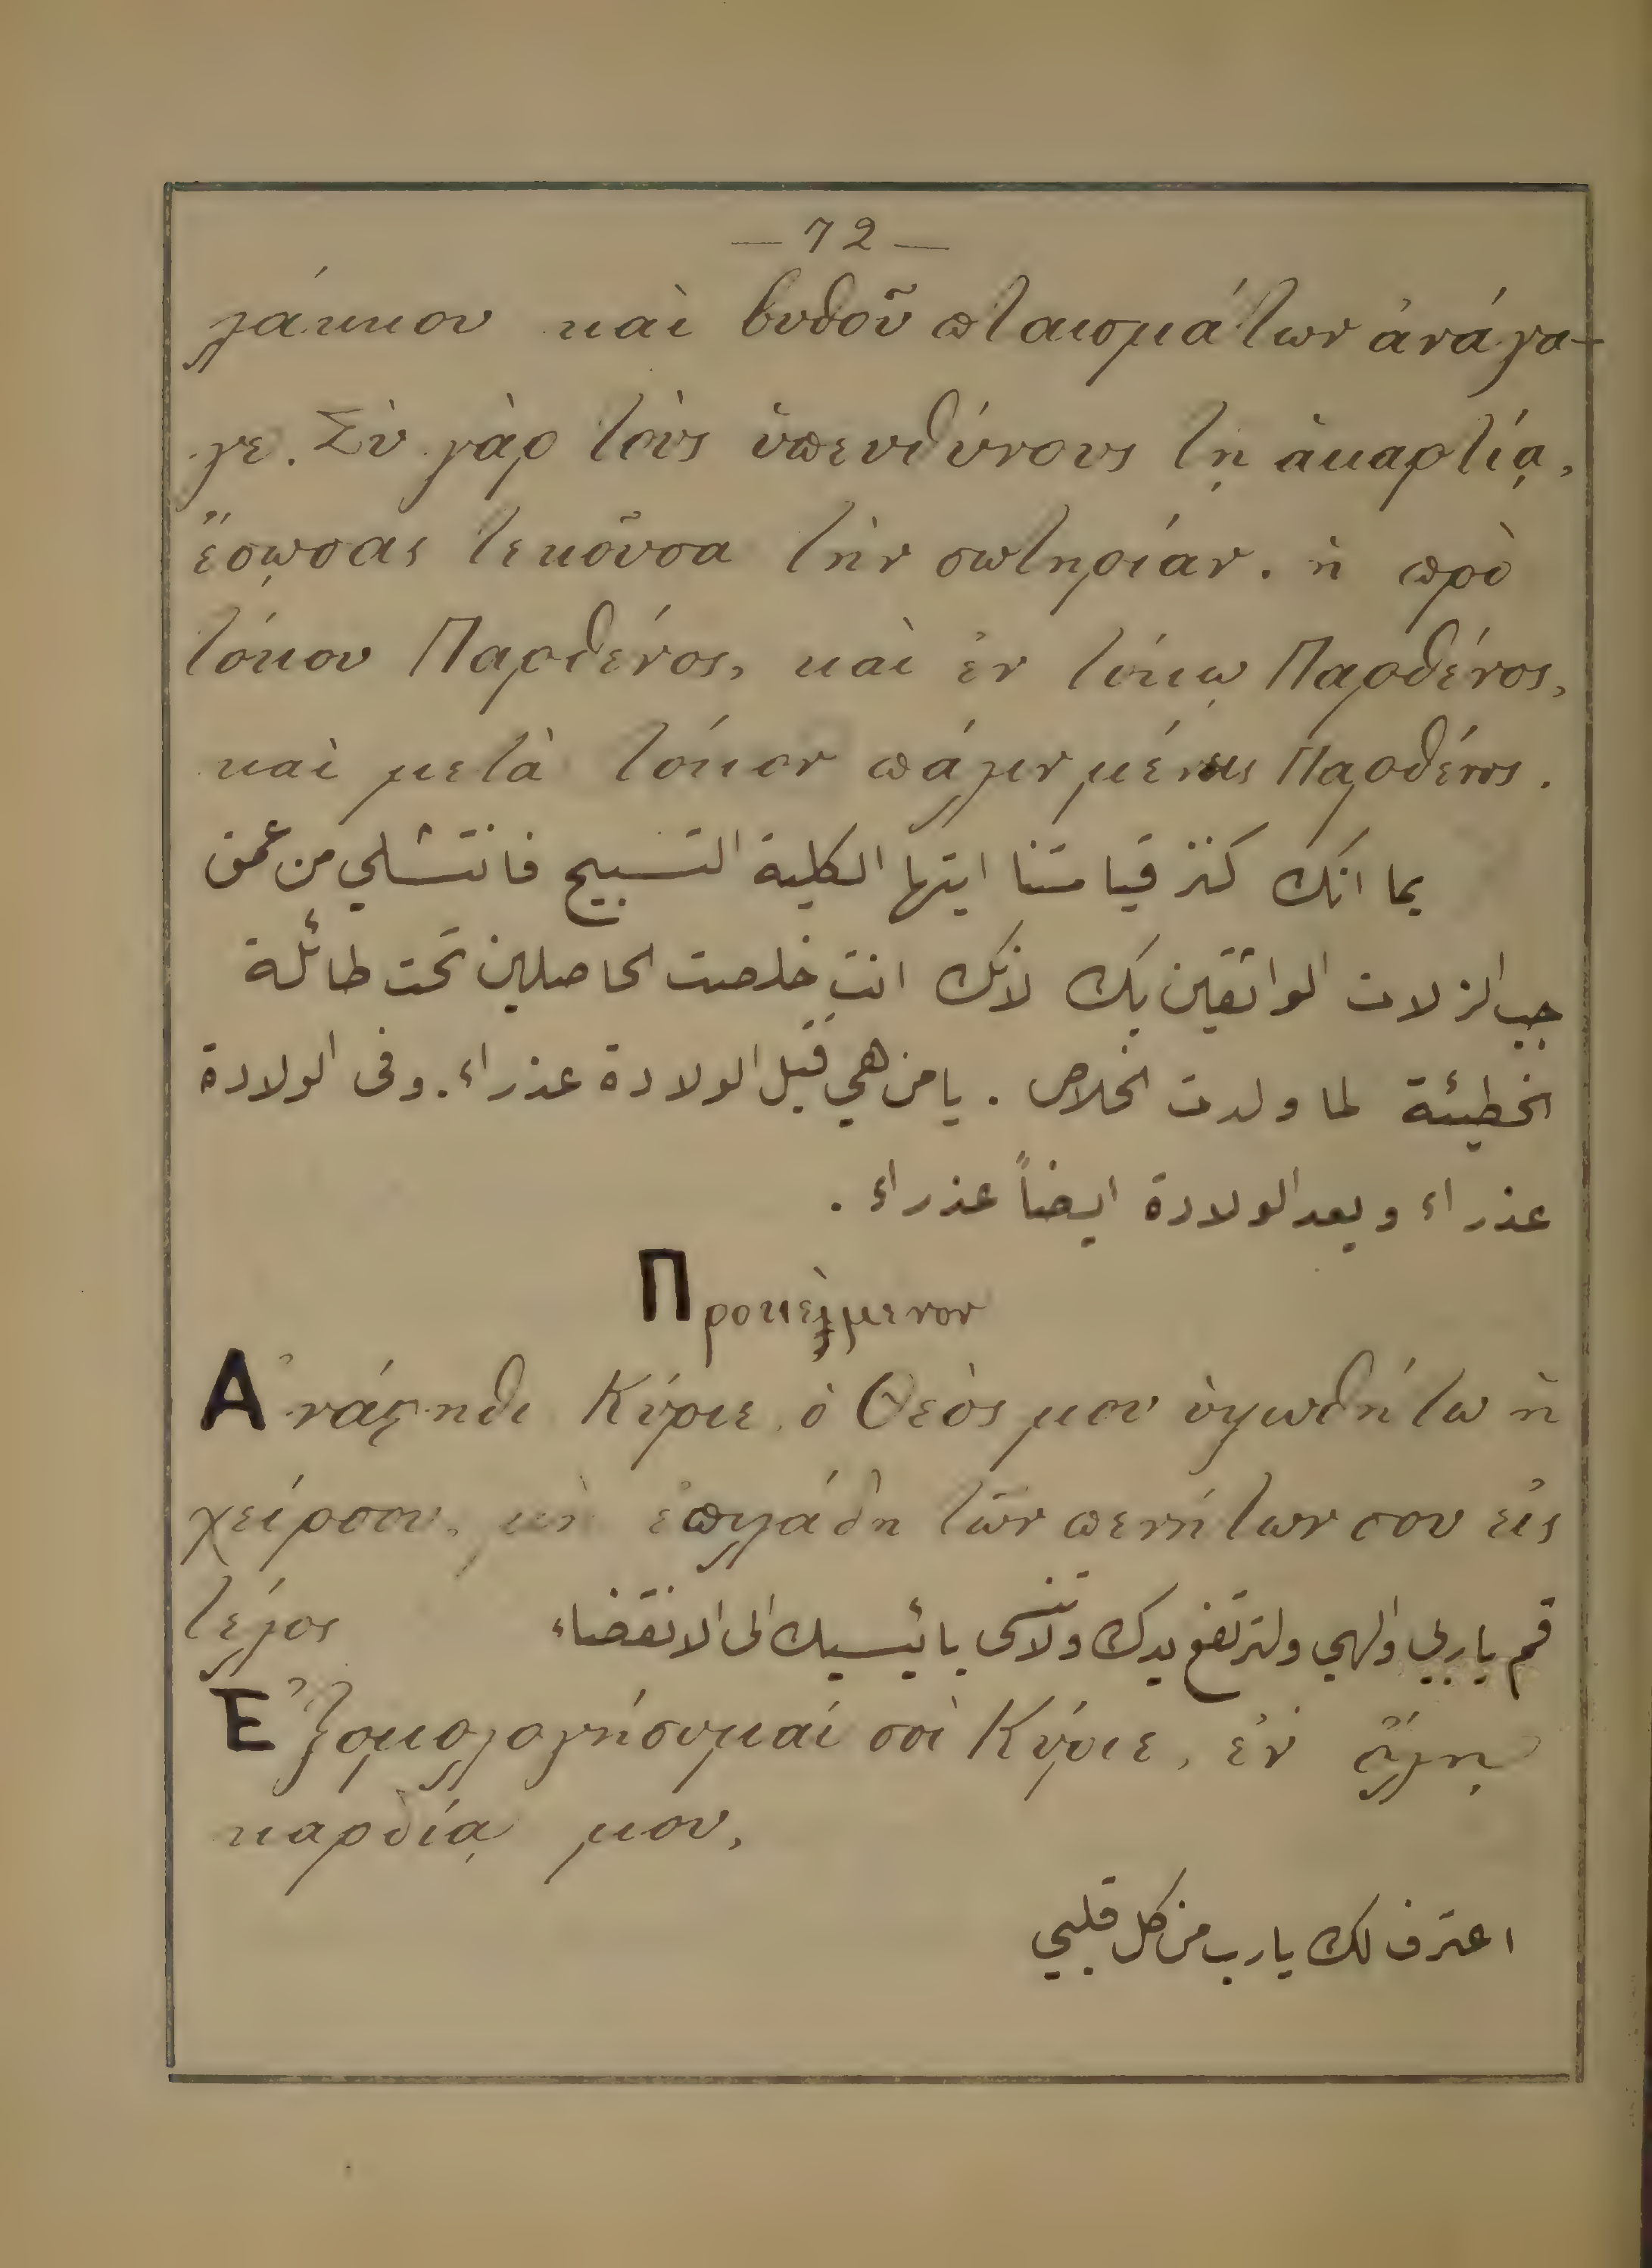 — 72 —
λάκκου καὶ βυθοῦ πταισμάτων ἀνάγα-
γε. Σὺ γὰρ τοὺς ὑπευθύνους τῇ ἁμαρτίᾳ,
ἔσῳσας τεκοῦσα τὴν σωτηρίαν. ἡ πρὸ
τόκου Παρθένος, καὶ ἐν τόκῳ Παρθένος,
καὶ μετὰ τόκον πάλιν μένεις Παρθένος.
بما انك كنز قيامتنا ايتها الكلية التسبيح فانتشلي من عمق
جب الزلات الواثقين بك لانك انتِ خلصت الحاصلين تحت طائلة
الخطيئة لما ولدت الخلاص . يا من هي قبل الولادة عذراء . وفى الولادة
عذراء وبعد الولادة ايضاً عذراء .
Προκείμενον
Ἀνάστηθι Κύριε ὁ Θεός μου ὑψωθήτω ἡ
χείρσου, μὴ ἐπιλάθῃ τῶν πενήτων σου εἰς
τέλος قم يا ربي والهي ولترتفع يدك ولا تنسى بائيسيك الى الانقضاء
Ἐξομολογήσομαί σοὶ Κύριε, ἐν ὅλῃ
καρδίᾳ μου,
اعترف لك يارب من كل قلبي